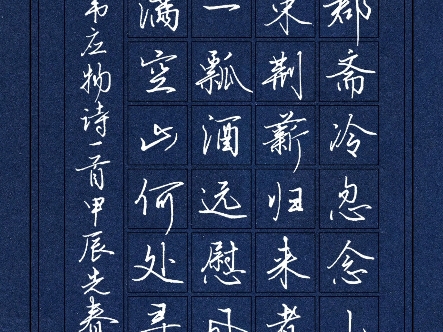 郡斋冷忽念
束荆薪归来煮
一瓢酒远慰风
满空山何处寻
韦应物诗一首甲辰先春